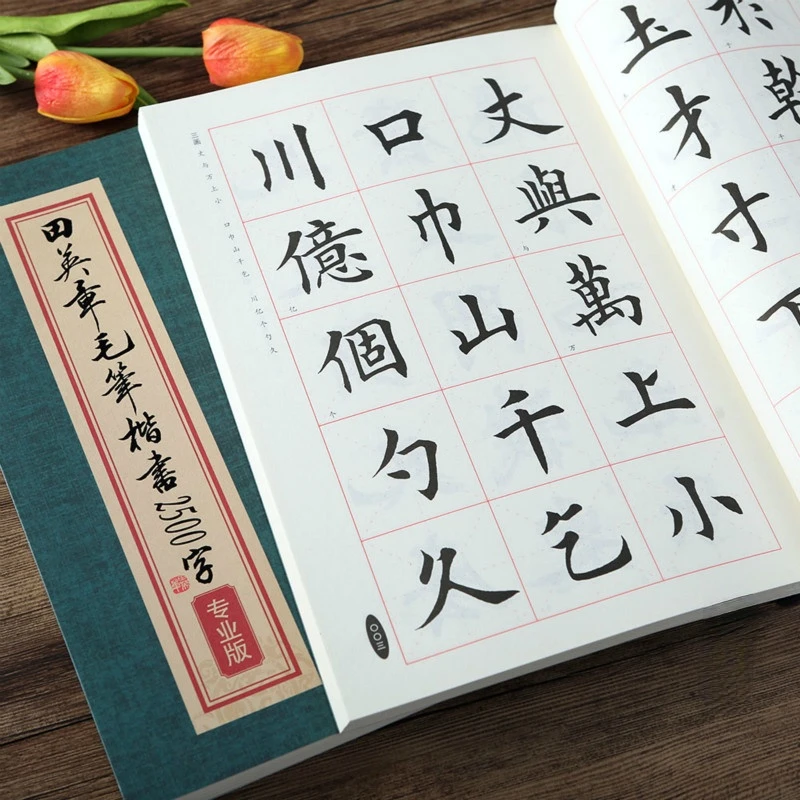 田英章毛筆楷書2500字
专业版
三画 丈 与 万 上 小 口 巾 山 千 乞 川 亿 个 勺 久
丈與萬上小
与
万
口巾山千乞
川億個勺久
亿
个
〇〇三
於乾
土才寸